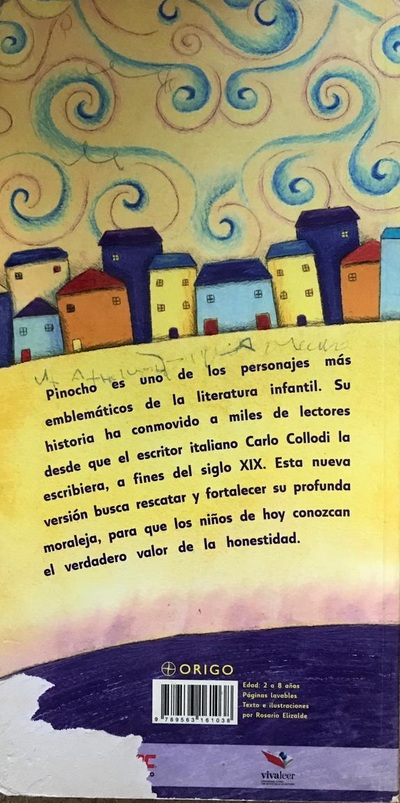 Pinocho es uno de los personajes más
emblemáticos de la literatura infantil. Su
historia ha conmovido a miles de lectores
desde que el escritor italiano Carlo Collodi la
escribiera, a fines del siglo XIX. Esta nueva
versión busca rescatar y fortalecer su profunda
moraleja, para que los niños de hoy conozcan
el verdadero valor de la honestidad.
ORIGO
Edad: 2 a 8 años
Páginas lavables
Texto e ilustraciones
por Rosario Elizalde
9 789563 161038
vivaleer